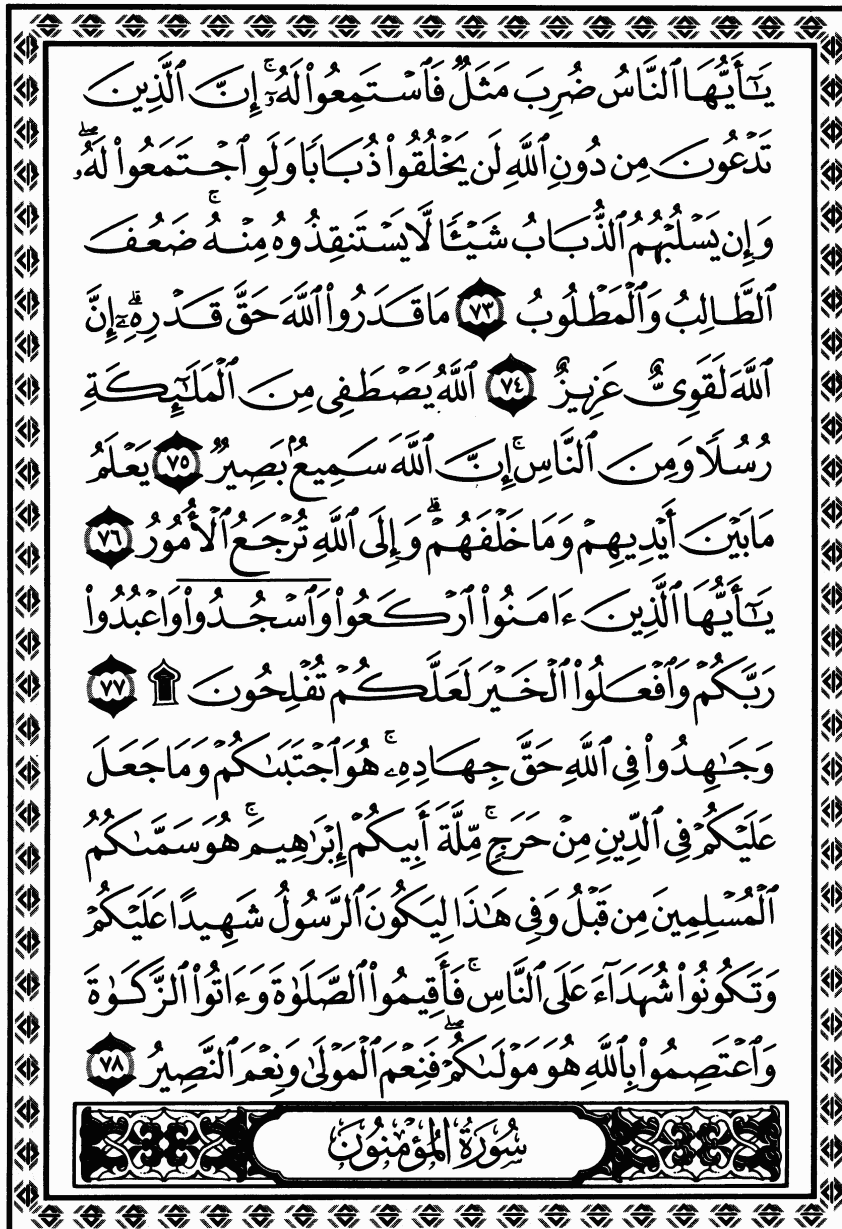 يَـٰٓأَيُّهَا ٱلنَّاسُ ضُرِبَ مَثَلٌ فَٱسْتَمِعُوا۟ لَهُۥٓ ۚ إِنَّ ٱلَّذِينَ
تَدْعُونَ مِن دُونِ ٱللَّهِ لَن يَخْلُقُوا۟ ذُبَابًا وَلَوِ ٱجْتَمَعُوا۟ لَهُۥ ۖ
وَإِن يَسْلُبْهُمُ ٱلذُّبَابُ شَيْـًٔا لَّا يَسْتَنقِذُوهُ مِنْهُ ۚ ضَعُفَ
ٱلطَّالِبُ وَٱلْمَطْلُوبُ ٧٣ مَا قَدَرُوا۟ ٱللَّهَ حَقَّ قَدْرِهِۦٓ ۗ إِنَّ
ٱللَّهَ لَقَوِىٌّ عَزِيزٌ ٧٤ ٱللَّهُ يَصْطَفِى مِنَ ٱلْمَلَـٰٓئِكَةِ
رُسُلًا وَمِنَ ٱلنَّاسِ ۚ إِنَّ ٱللَّهَ سَمِيعٌۢ بَصِيرٌ ٧٥ يَعْلَمُ
مَا بَيْنَ أَيْدِيهِمْ وَمَا خَلْفَهُمْ ۗ وَإِلَى ٱللَّهِ تُرْجَعُ ٱلْأُمُورُ ٧٦
يَـٰٓأَيُّهَا ٱلَّذِينَ ءَامَنُوا۟ ٱرْكَعُوا۟ وَٱسْجُدُوا۟ وَٱعْبُدُوا۟
رَبَّكُمْ وَٱفْعَلُوا۟ ٱلْخَيْرَ لَعَلَّكُمْ تُفْلِحُونَ ۩ ٧٧
وَجَـٰهِدُوا۟ فِى ٱللَّهِ حَقَّ جِهَادِهِۦ ۚ هُوَ ٱجْتَبَىٰكُمْ وَمَا جَعَلَ
عَلَيْكُمْ فِى ٱلدِّينِ مِنْ حَرَجٍ ۚ مِّلَّةَ أَبِيكُمْ إِبْرَٰهِيمَ ۚ هُوَ سَمَّىٰكُمُ
ٱلْمُسْلِمِينَ مِن قَبْلُ وَفِى هَـٰذَا لِيَكُونَ ٱلرَّسُولُ شَهِيدًا عَلَيْكُمْ
وَتَكُونُوا۟ شُهَدَآءَ عَلَى ٱلنَّاسِ ۚ فَأَقِيمُوا۟ ٱلصَّلَوٰةَ وَءَاتُوا۟ ٱلزَّكَوٰةَ
وَٱعْتَصِمُوا۟ بِٱللَّهِ هُوَ مَوْلَىٰكُمْ ۖ فَنِعْمَ ٱلْمَوْلَىٰ وَنِعْمَ ٱلنَّصِيرُ ٧٨
سُورَةُ الْمُؤْمِنُونَ